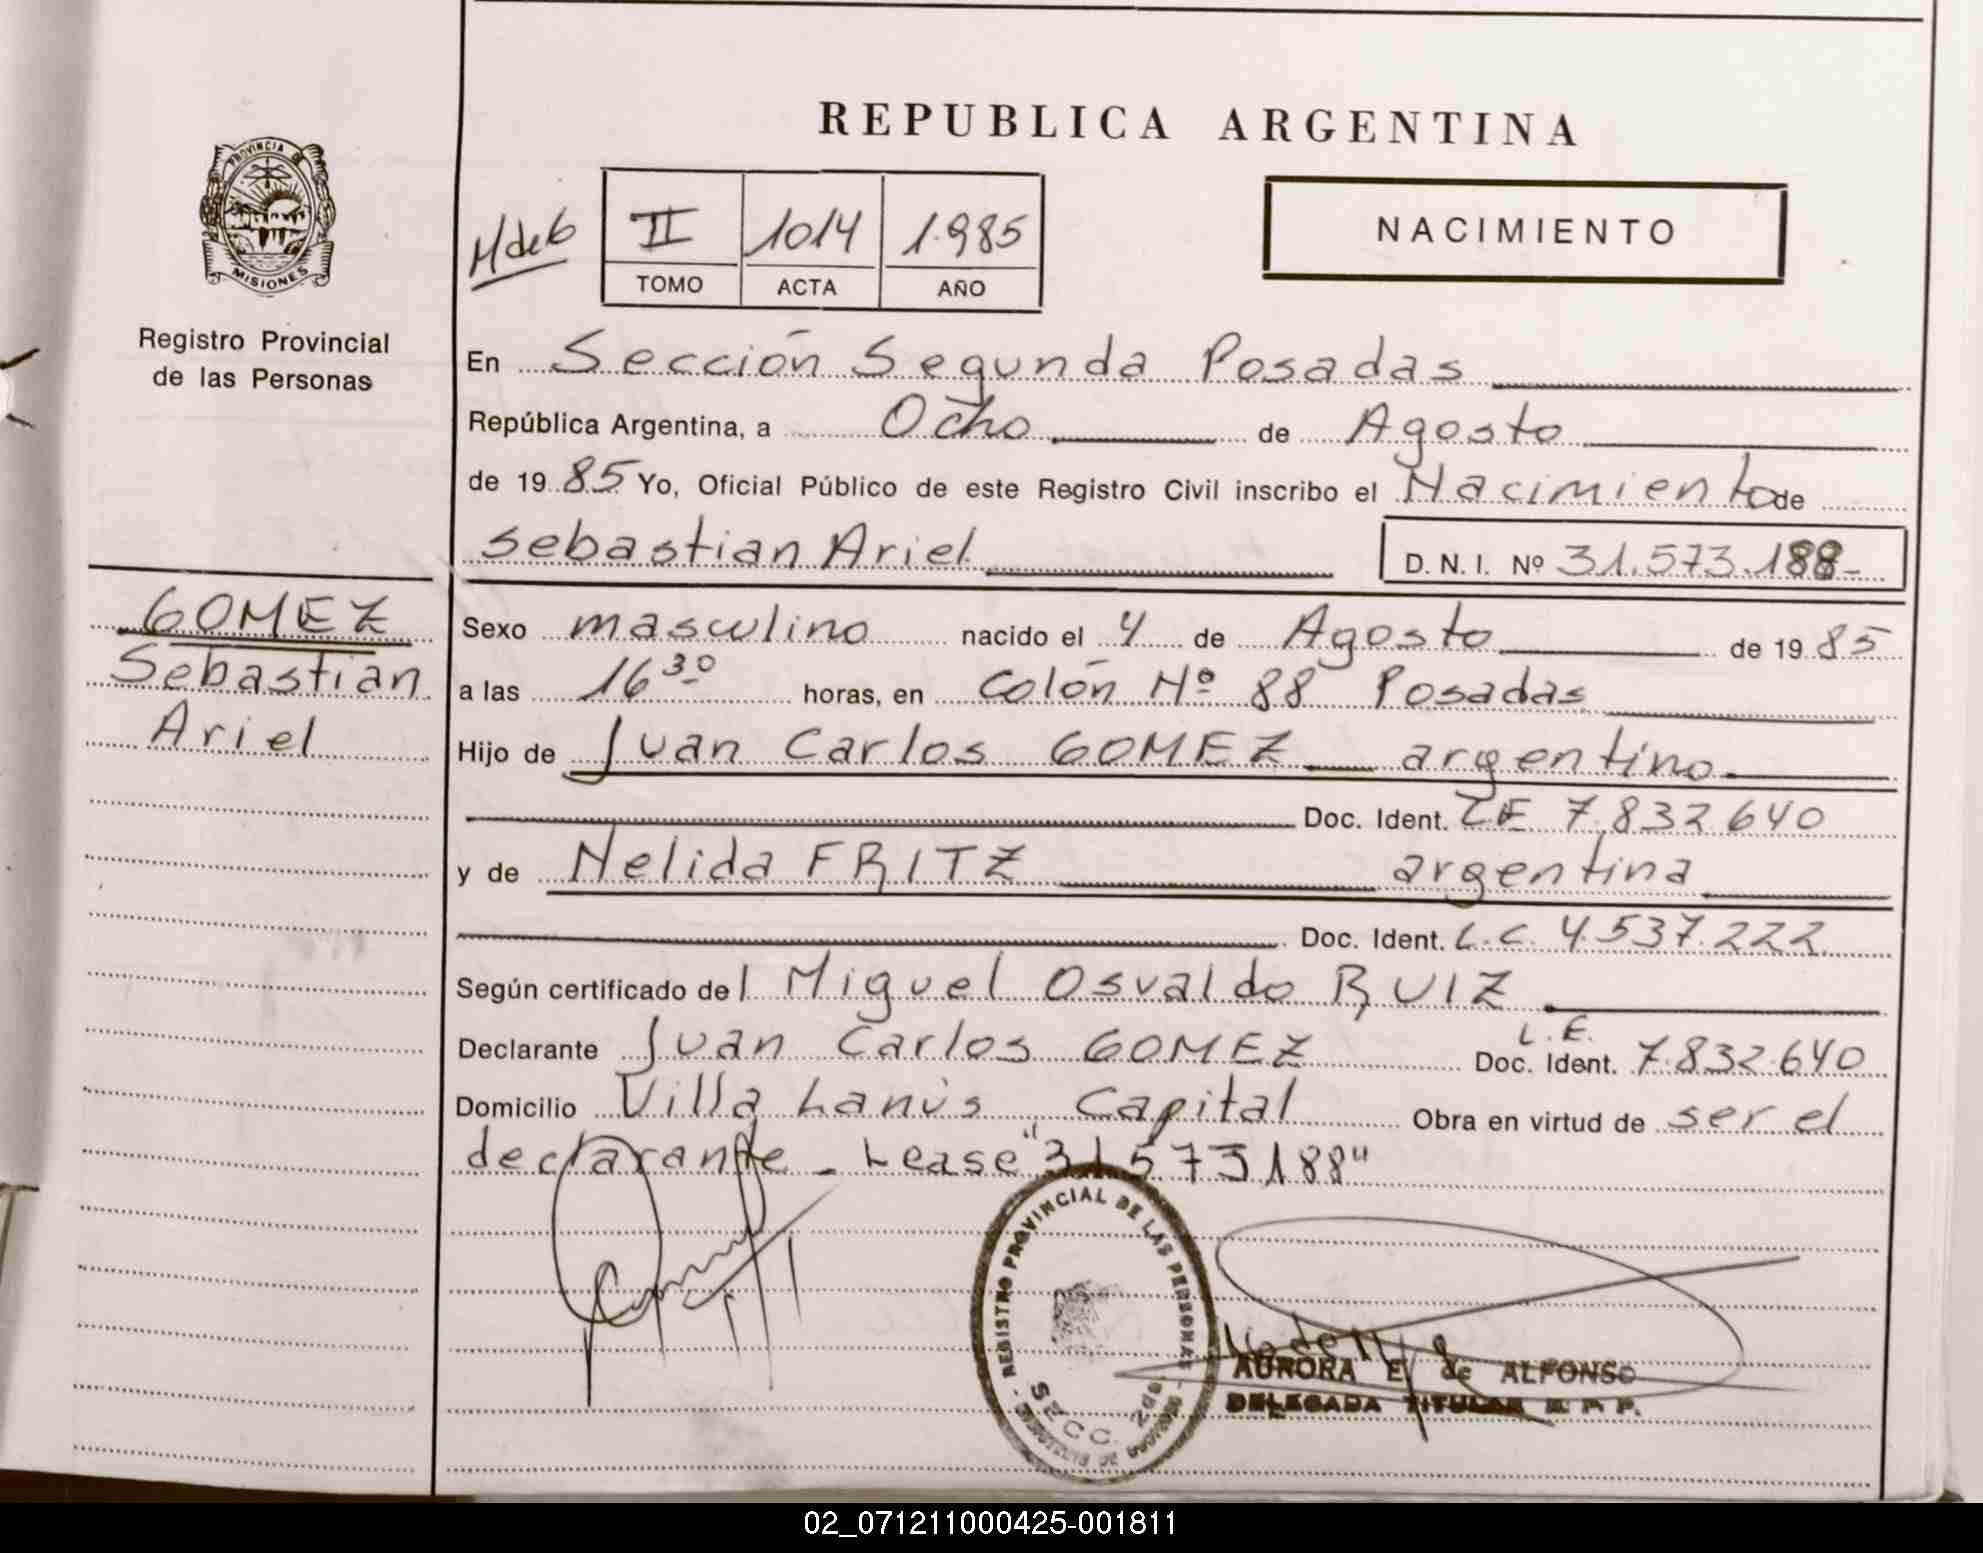 REPUBLICA ARGENTINA
PROVINCIA DE
MISIONES
Registro Provincial
de las Personas
II 1014 1.985
TOMO ACTA AÑO
NACIMIENTO
En Sección Segunda Posadas
República Argentina, a Ocho de Agosto
de 1985 Yo, Oficial Público de este Registro Civil inscribo el Nacimiento de
Sebastian Ariel D. N. I. Nº 31.573.188-
GOMEZ
Sebastian
Ariel
Sexo masculino nacido el 4 de Agosto de 1985
a las 16 30 horas, en Colón Nº 88 Posadas
Hijo de Juan Carlos GOMEZ argentino
Doc. Ident. LE 7.832.640
y de Nelida FRITZ argentina
Doc. Ident. L.C. 4.537.222
Según certificado del Miguel Osvaldo RUIZ
Declarante Juan Carlos GOMEZ Doc. Ident. L.E. 7.832.640
Domicilio Villa Lanús Capital Obra en virtud de ser el
declarante - Lease "31573188"
REGISTRO PROVINCIAL DE LAS PERSONAS
SECC. 2da
AURORA E. de ALFONSO
DELEGADA TITULAR R. P. P.
02_071211000425-001811